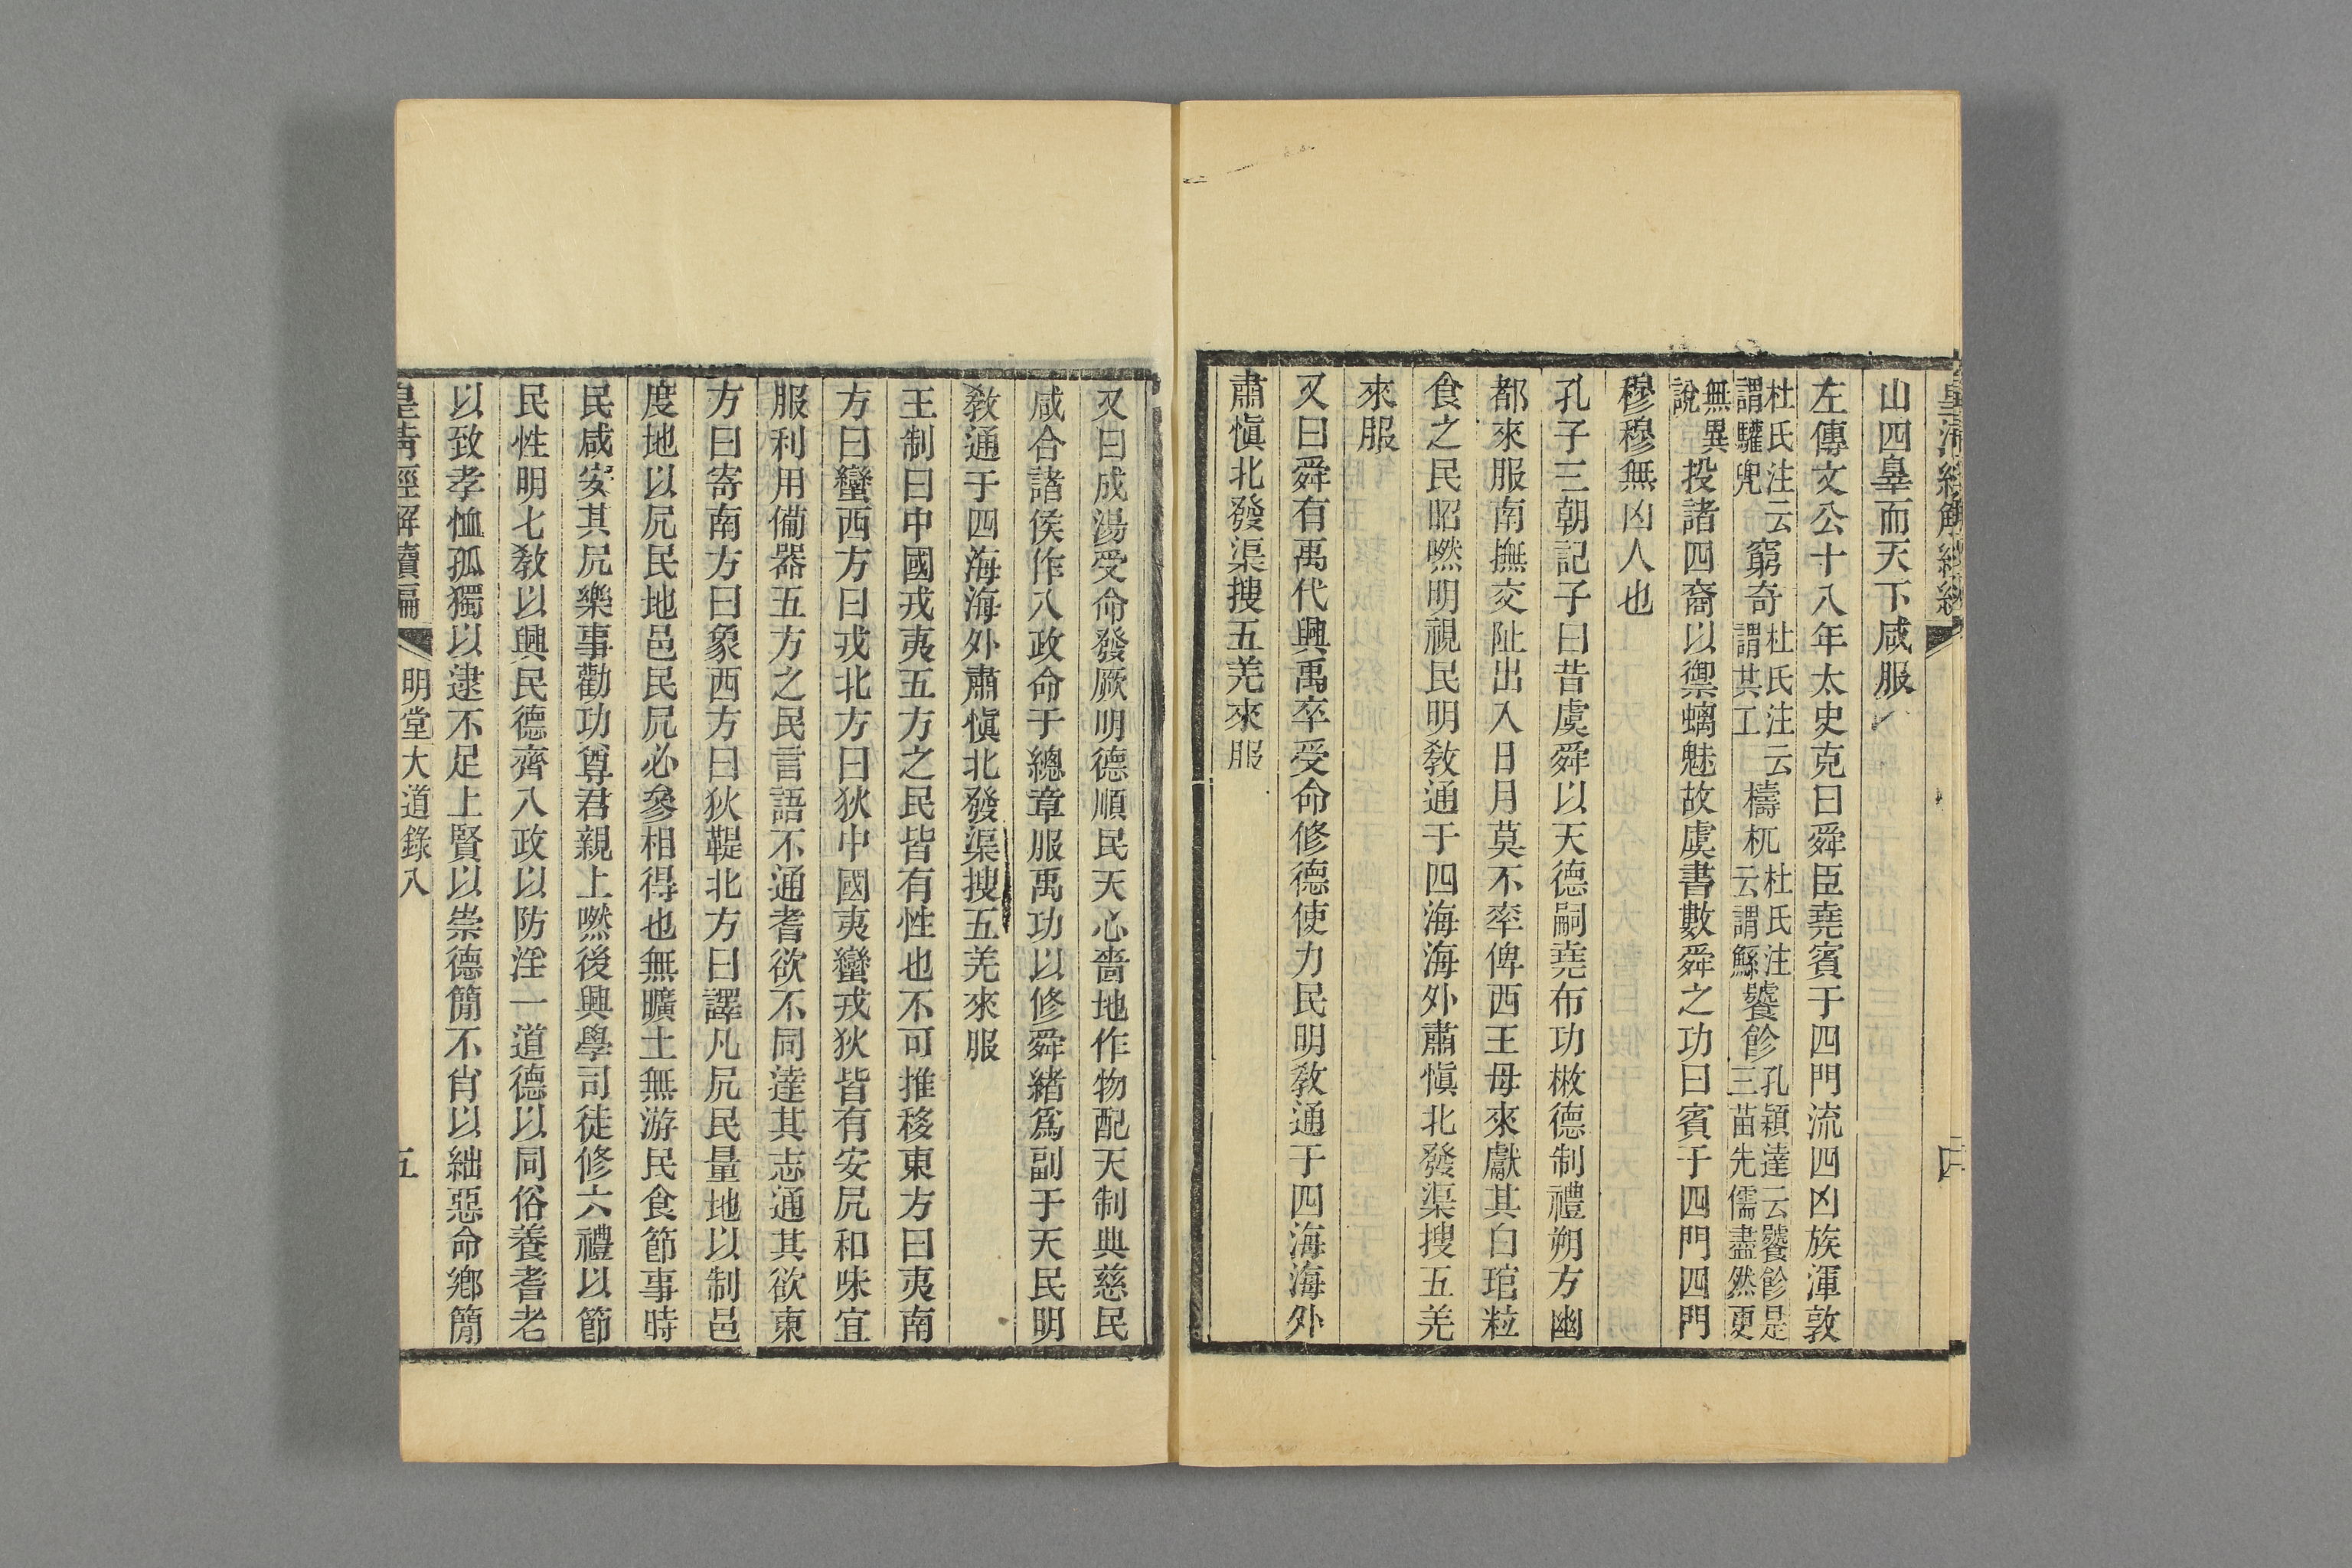 皇淸經解續編
四
山四辠而天下咸服
左傳文公十八年太史克曰舜臣堯賓于四門流四凶族渾敦
杜氏注云謂驩兜窮奇杜氏注云謂其工檮杌杜氏注云謂鯀饕飻孔穎達云饕飻是三苗先儒盡然更
無異說投諸四裔以禦螭魅故虞書數舜之功曰賓于四門四門
穆穆無凶人也
孔子三朝記子曰昔虞舜以天德嗣堯布功㪚德制禮朔方幽
都來服南撫交阯出入日月莫不率俾西王母來獻其白琯粒
食之民昭嘫明視民明敎通于四海海外肅愼北發渠搜五羌
來服
又曰舜有禹代興禹卒受命修德使力民明敎通于四海海外
肅愼北發渠搜五羌來服
又曰成湯受命發厥明德順民天心嗇地作物配天制典慈民
咸合諸侯作八政命于總章服禹功以修舜緒爲副于天民明
敎通于四海海外肅愼北發渠搜五羌來服
王制曰中國戎夷五方之民皆有性也不可推移東方曰夷南
方曰蠻西方曰戎北方曰狄中國夷蠻戎狄皆有安凥和味宜
服利用備器五方之民言語不通耆欲不同達其志通其欲東
方曰寄南方曰象西方曰狄鞮北方曰譯凡凥民量地以制邑
度地以凥民地邑民凥必參相得也無曠土無游民食節事時
民咸安其凥樂事勸功尊君親上嘫後興學司徒修六禮以節
民性明七敎以興民德齊八政以防淫一道德以同俗養耆老
以致孝恤孤獨以逮不足上賢以崇德簡不肖以絀惡命鄕簡
皇淸經解續編
明堂大道錄八
五